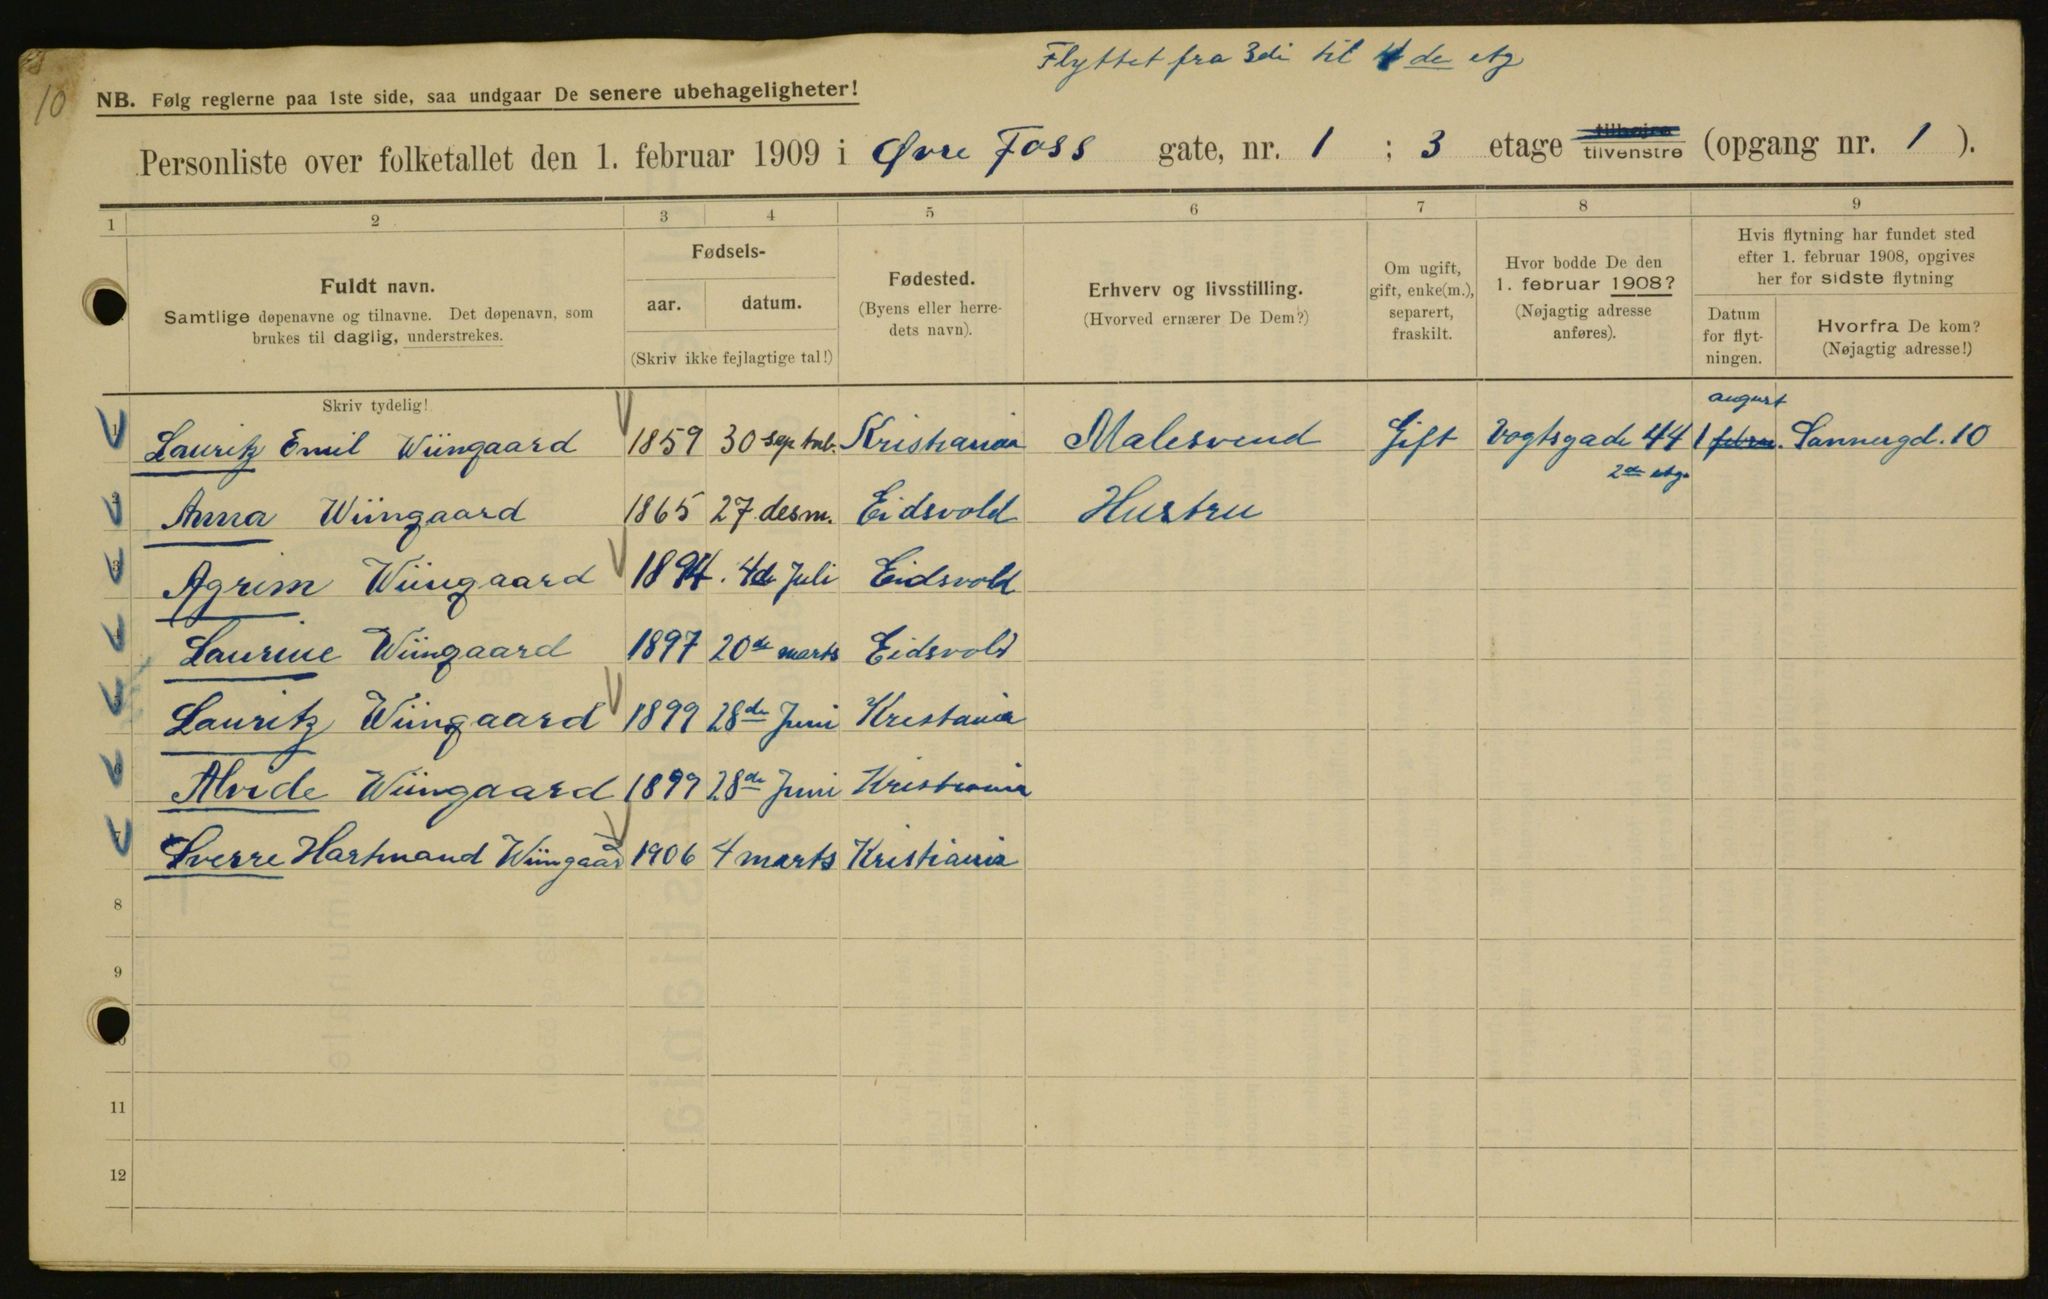 10
Flyttet fra 3di til 4 de etg
NB. Følg reglerne paa 1ste side, saa undgaar De senere ubehageligheter!
Personliste over folketallet den 1. februar 1909 i Øvre Foss gate, nr. 1 ; 3 etage tilhøjre tilvenstre (opgang nr. 1 ).
1 2 3 4 5 6 7 8 9
Fuldt navn.
Samtlige døpenavne og tilnavne. Det døpenavn, som
brukes til daglig, understrekes.
Fødsels-
aar. datum.
(Skriv ikke fejlagtige tal!)
Fødested.
(Byens eller herre-
dets navn).
Erhverv og livsstilling.
(Hvorved ernærer De Dem?)
Om ugift,
gift, enke(m.),
separert,
fraskilt.
Hvor bodde De den
1. februar 1908?
(Nøjagtig adresse
anføres).
Hvis flytning har fundet sted
efter 1. februar 1908, opgives
her for sidste flytning
Datum
for flyt-
ningen.
Hvorfra De kom?
(Nøjagtig adresse!)
Skriv tydelig!
august
1 Lauritz Emil Wiingaard 1859 30 septmb. Kristiania Malesvend Gift Vogtsgade 44 1 febru. Sannergd. 10
2de etg.
2 Anna Wiingaard 1865 27 desm. Eidsvold Hustru
3 Agrim Wiingaard 1894. 4de Juli Eidsvold
4 Laurine Wiingaard 1897 20de marts Eidsvold
5 Lauritz Wiingaard 1899 28de Juni Kristania
6 Alvide Wiingaard 1899 28de Juni Kristiania
7 Sverre Hartmand Wiingaard 1906 4 marts Kristiania
8
9
10
11
12